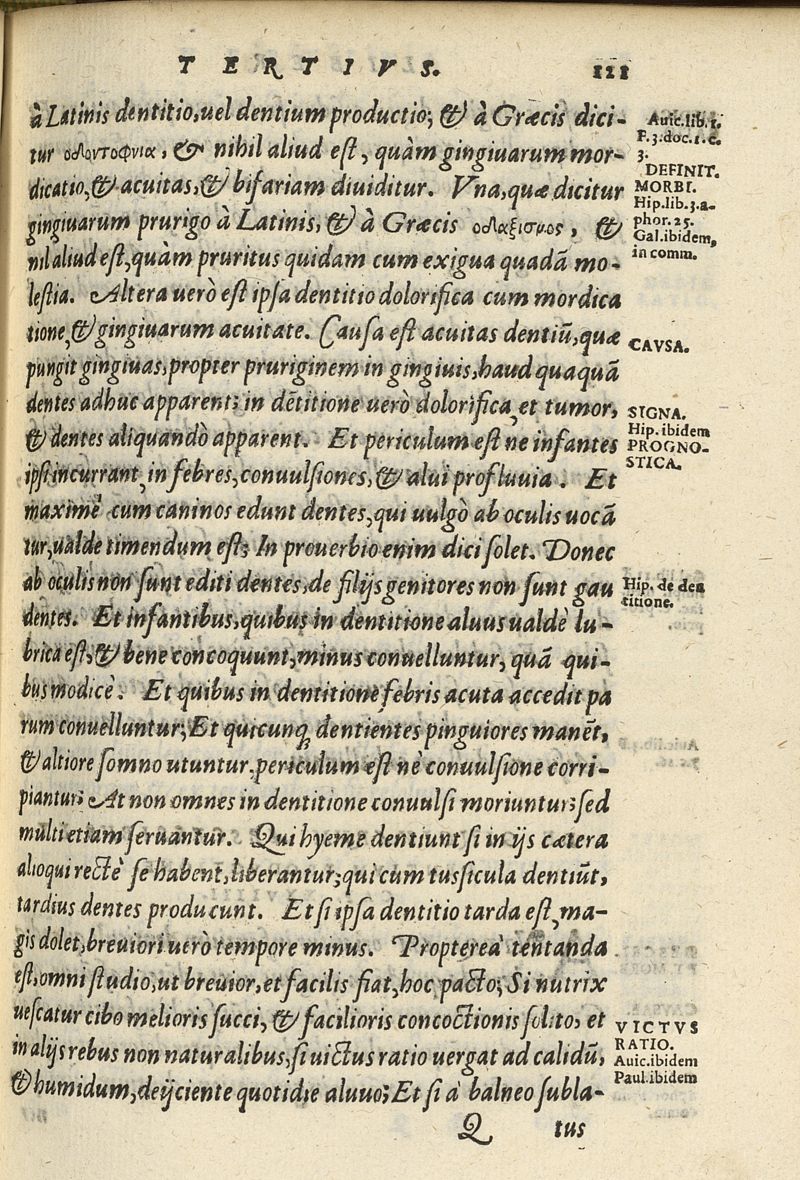 TERTIVS. 111
à Latinis dentitio, uel dentium productio; & à Græcis dici-
tur οδοντοφυια, & nihil aliud est, quàm gingiuarum mor-
dicatio, & acuitas, & bifariam diuiditur. Vna, quæ dicitur
gingiuarum prurigo à Latinis, & à Græcis οδαξισμος, &
nil aliud est, quàm pruritus quidam cum exigua quadã mo-
lestia. Altera uerò est ipsa dentitio dolorifica cum mordica
tione, & gingiuarum acuitate. Causa est acuitas dentiũ, quæ
pungit gingiuas, propter pruriginem in gingiuis, haud quaquã
dentes adhuc apparent; in dẽtitione uerò dolorifica, et tumor,
& dentes aliquandò apparent. Et periculum est ne infantes
ipsi incurrant, in febres, conuulsiones, & alui profluuia. Et
maximè cum caninos edunt dentes, qui uulgò ab oculis uocã
tur, ualde timendum est; In prouerbio enim dici solet. Donec
ab oculis non sunt editi dentes, de filijs genitores non sunt gau
dentes. Et infantibus, quibus in dentitione aluus ualdè lu-
brica est, & bene concoquunt, minus conuelluntur, quã qui-
bus modicè. Et quibus in dentitione febris acuta accedit pa
rum conuelluntur; Et quicunq; dentientes pinguiores manẽt,
& altiore somno utuntur, periculum est nè conuulsione corri-
piantur; At non omnes in dentitione conuulsi moriuntur; sed
multi etiam seruantur. Qui hyeme dentiunt si in ijs cætera
alioqui rectè se habent, liberantur; qui cum tussicula dentiũt,
tardius dentes producunt. Et si ipsa dentitio tarda est, ma-
gis dolet, breuiori uerò tempore minus. Propterea tentanda
est, omni studio, ut breuior, et facilis fiat, hoc pacto; Si nutrix
uescatur cibo melioris succi, & facilioris concoctionis solito, et
in alijs rebus non naturalibus, si uictus ratio uergat ad calidũ,
& humidum, deijciente quotidie aluuo; Et si à balneo subla-
Q tus
Auic.lib.1.
F.3.doc.1.c.
3.
DEFINIT.
MORBI.
Hip.lib.3.a-
phor.25.
Gal.ibidem,
in comm.
CAVSA.
SIGNA.
Hip.ibidem
PROGNO-
STICA.
Hip. de den
titione.
VICTVS
RATIO.
Auic.ibidem
Paul.ibidem